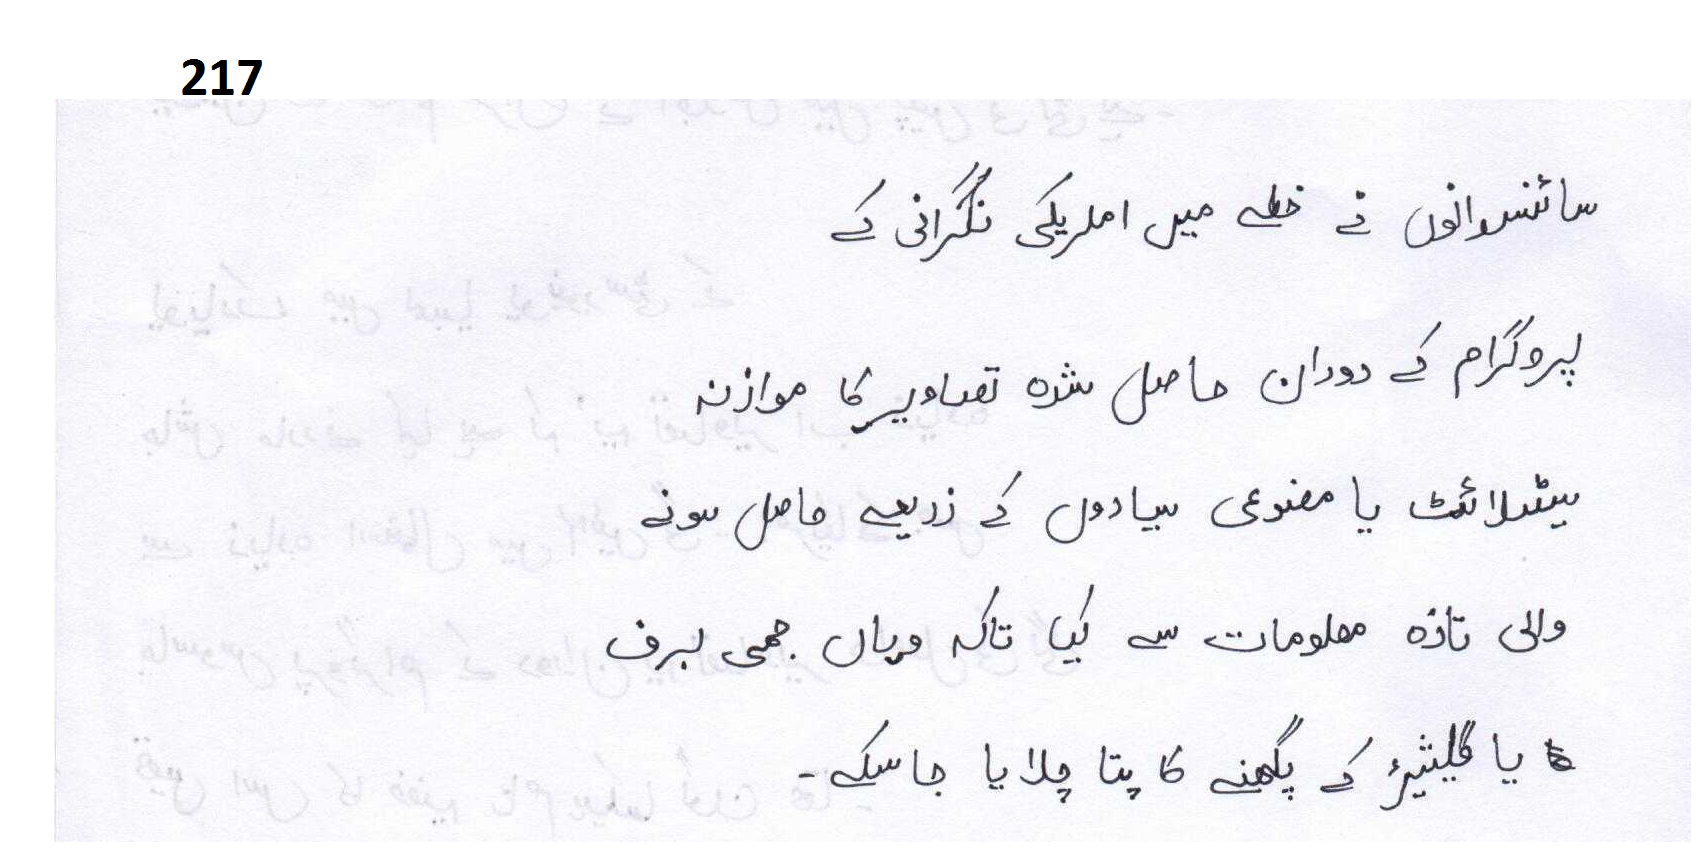 217
سائنسدانوں نے خطے میں امریکی نگرانی کے
پروگرام کے دوران حاصل شدہ تصاویر کا موازنہ
سیٹلائٹ یا مصنوعی سیاروں کے ذریعے حاصل ہونے
والی تازہ معلومات سے کیا تاکہ وہاں جمی برف
یا گلیشیئر کے پگھنے کا پتا چلایا جا سکے۔